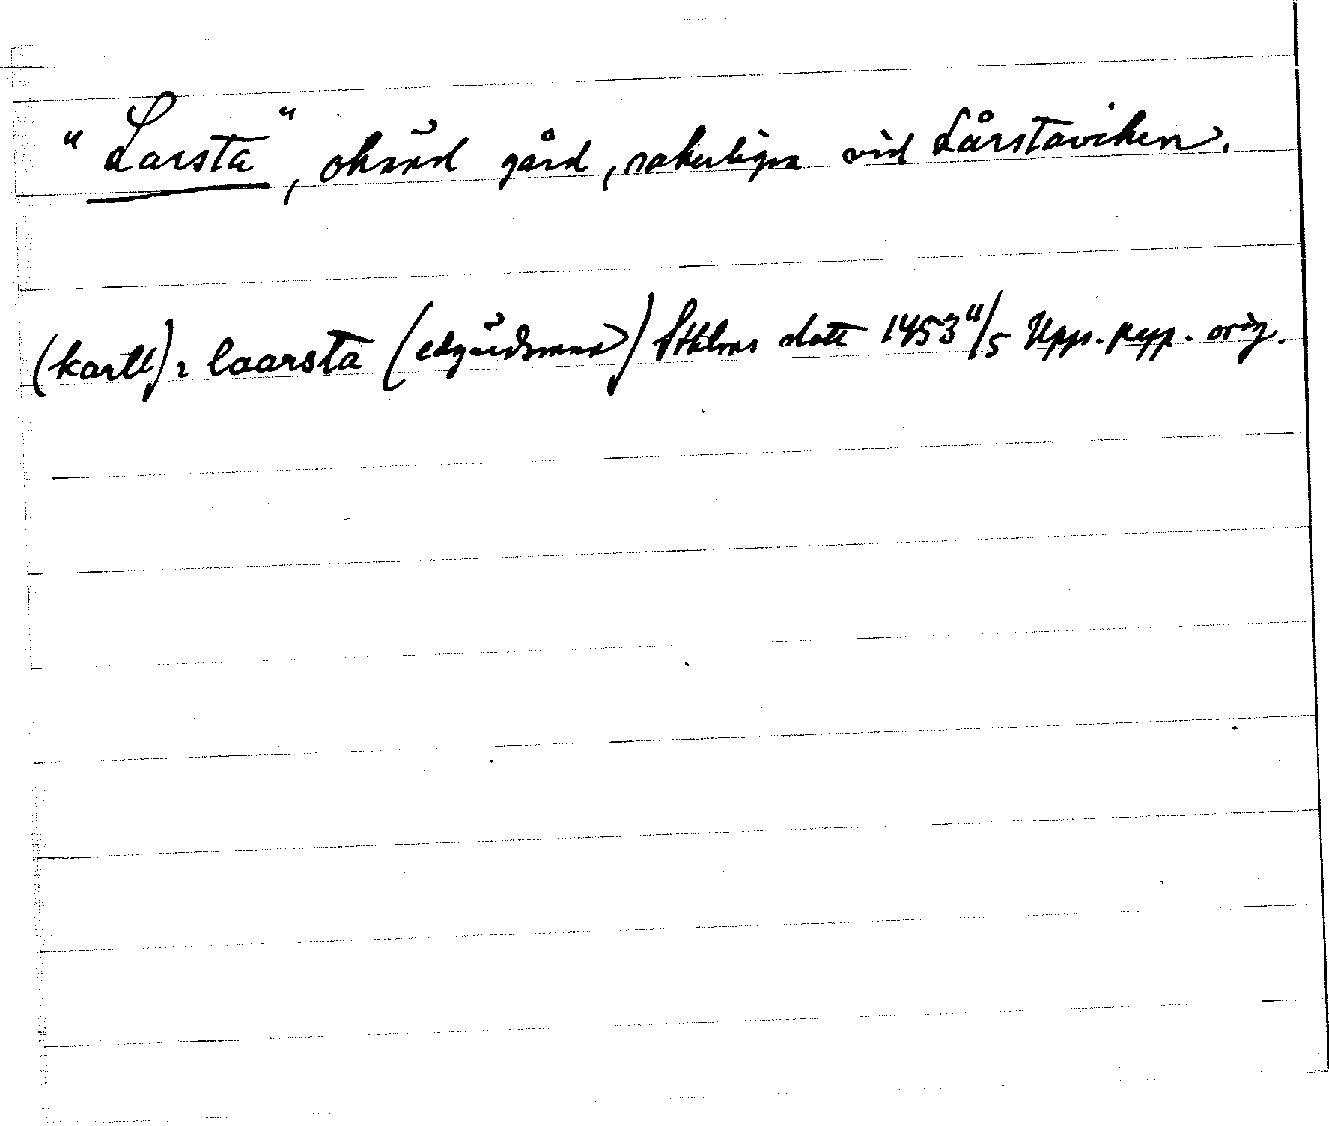 "Larsta", okänd gård, sakerligen vid Lårstaviken.
(karll) i laarsta (edgärdsman) Sthlms slott 1453 11/5 Upps. papp. orig.